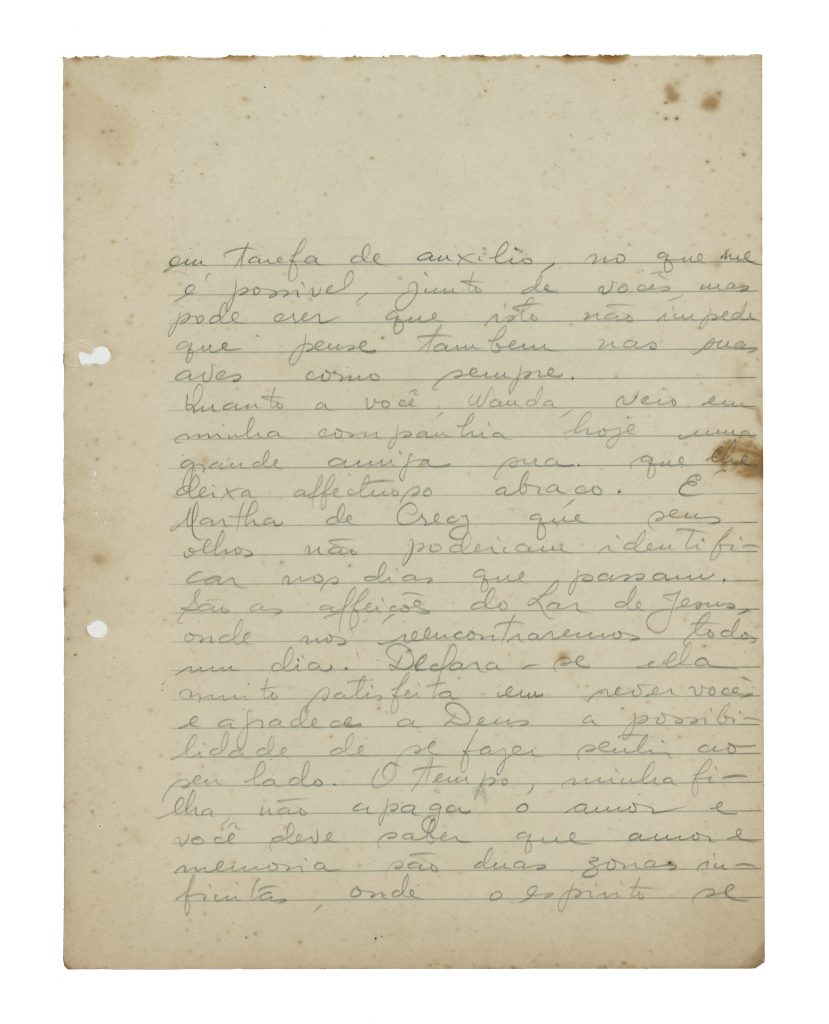 em tarefa de auxilio, no que me
é possivel, junto de vocês, mas
pode crer que isto não impede
que pense tambem nas suas
aves como sempre.
Quanto a você, Wanda, veio em
minha companhia hoje uma
grande amiga sua que lhe
deixa affectuoso abraço. É
Martha de Crecy que seus
olhos não poderiam identifi-
car nos dias que passam.
São as affeições do Lar de Jesus,
onde nos reencontraremos todos
um dia. Declara-se ella
muito satisfeita em rever vocês
e agradece a Deus a possibi-
lidade de se fazer sentir ao
seu lado. O tempo, minha fi-
lha, não apaga o amor e
você deve saber que amor e
memoria são duas zonas in-
finitas, onde o espirito se